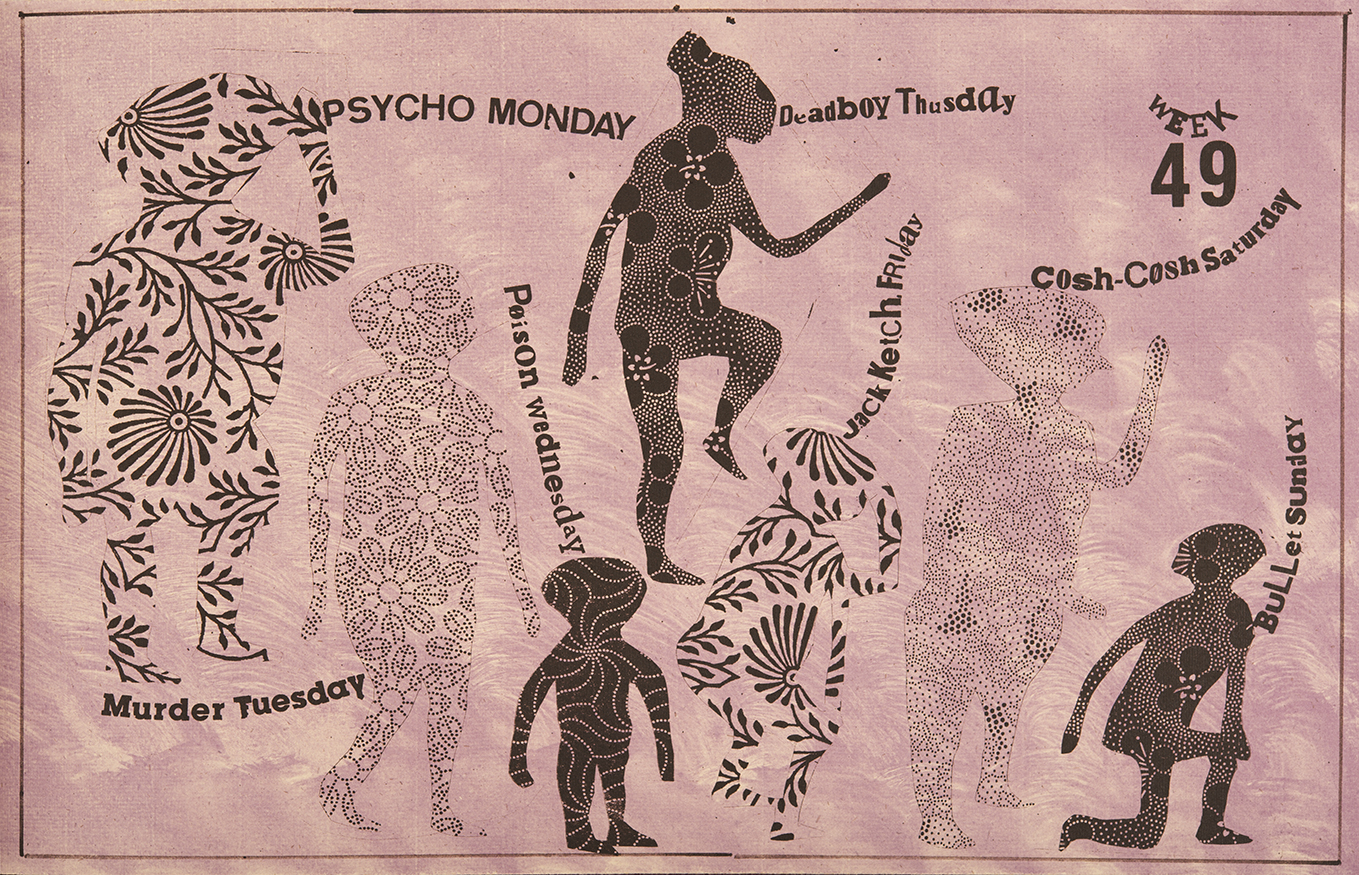 PSYCHO MONDAY
Murder Tuesday
Poison wednesday
Deadboy Thusday
Jack Ketch. FRiday
WEEK
49
Cosh-Cosh Saturday
BuLLet Sunday